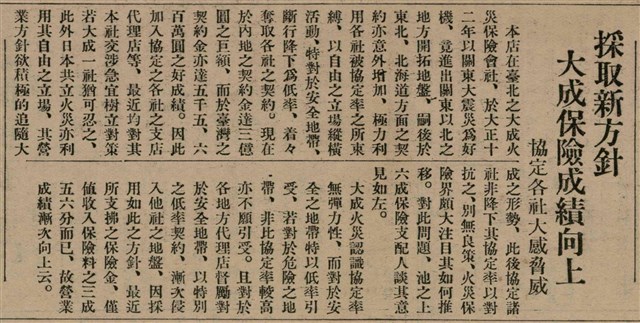 採取新方針
大成保險成績向上
協定各社大威脅威
本店在臺北之大成火
災保險會社、於大正十
二年以關東大震災爲好
機、竟進出關東以北之
地方開拓地盤、嗣後於
東北、北海道方面之契
約亦意外增加、極力利
用各社被協定率之所束
縛、以自由之立場縱橫
活動、特對於安全地帶、
斷行降下爲低率、着々
奪取各社之契約。現在
於內地之契約金達三億
圓之巨額、而於臺灣之
契約金亦達五千五、六
百萬圓之好成績。因此
加入協定之各社之支店
代理店等、最近均對其
本社交涉急宜樹立對策
若大成一社猶可忍之、
此外日本共立火災亦利
用其自由之立場、其營
業方針欲積極的追隨大
成之形勢、此後協定諸
社非降下其協定率以對
抗之、別無良策、火災保
險界頗大注目其如何推
移。對此問題、池之上
六成保險支配人談其意
見如左。
大成火災認識協定率
無彈力性、而對於安
全之地帶特以低率引
受、若對於危險之地
帶、非比協定率較高
亦不願引受。且對於
各地方代理店督勵對
於安全地帶、以特別
之低率契約、漸次侵
入他社之地盤、因採
用如此之方針、最近
所支拂之保險金、僅
值收入保險料之三成
五六分而已、故營業
成績漸次向上云。